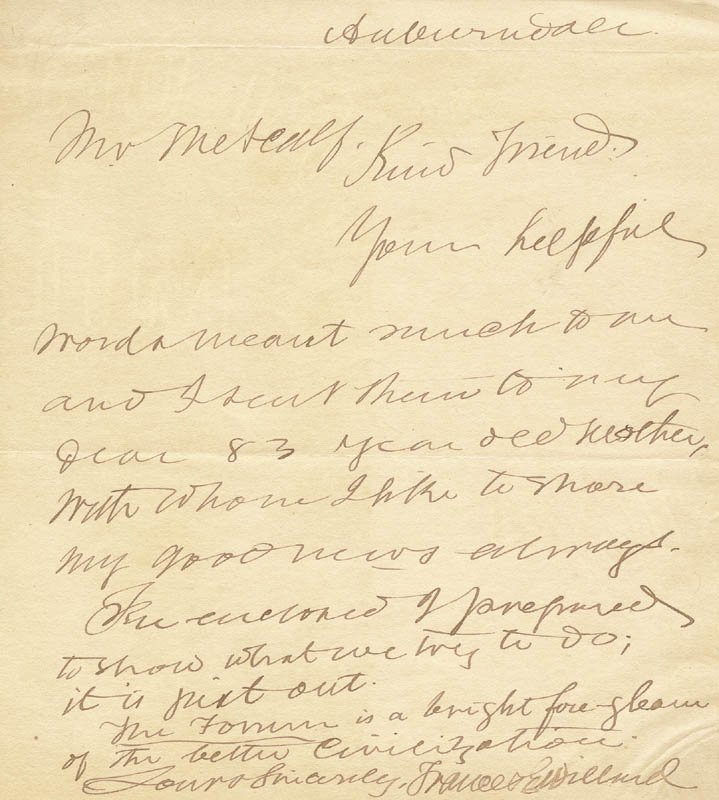 Auburndale.
Mr Metcalf. Kind Friend,
Your helpful
words meant much to me
and I sent them to my
dear 83 year old Mother,
with whom I like to share
my good news always.
The enclosed I prepared
to show what we try to do;
it is just out.
The Forum is a bright fore-gleam
of the better Civilization.
Yours Sincerely, Frances E. Willard